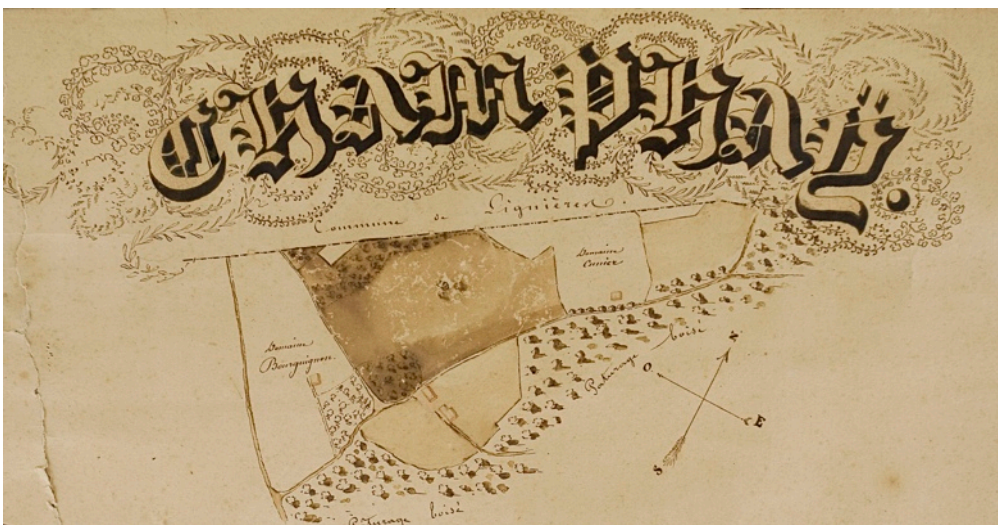 CHAMPHAŸ.
Commune de Lignières.
Domaine
Cunier
Domaine
Bourguignon
Pâturage boisé
N
O
E
S
Pâturage boisé